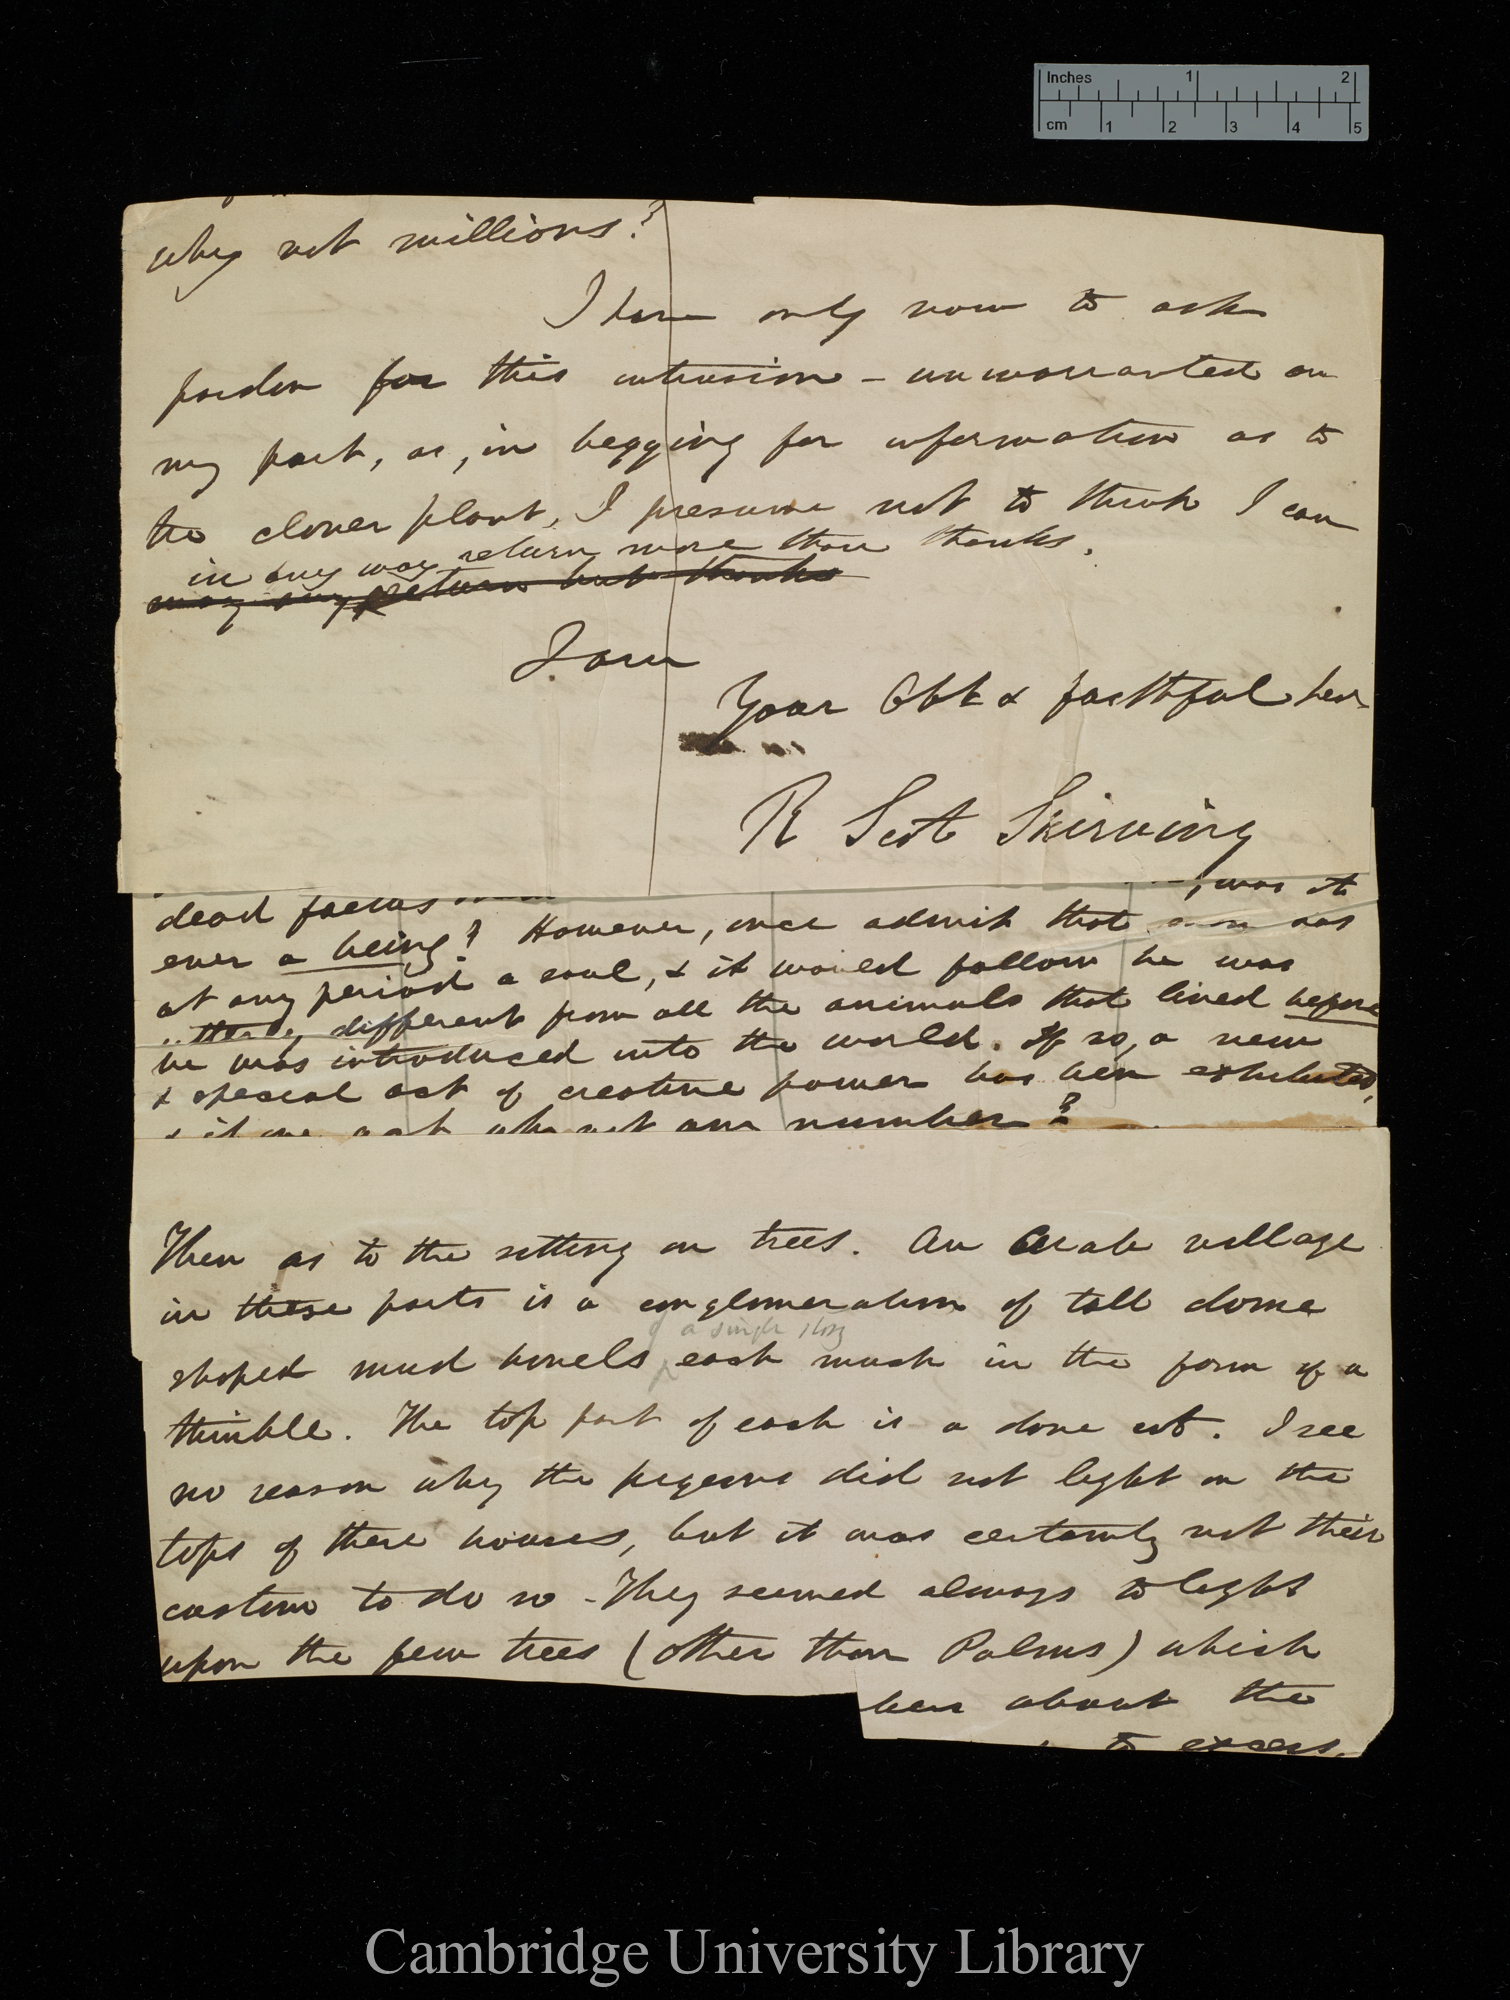 Inches 1 2
cm 1 2 3 4 5
why not millions?
I have only now to ask
pardon for this intrusion – unwarranted on
my part, as, in begging for information as to
the clover plant, I presume not to think I can
in any way return more than thanks.
may any return but thanks
I am
Your Obt & faithful Ser
R Scot Skirving
dead foetus
, was it
ever a being? However, once admit that man has
at any period a soul, & it would follow he was
utterly different from all the animals that lived before
he was introduced into the world. If so, a new
& special act of creative power has been exhibited,
& if one act why not any number?
Then as to the setting on trees. An Arab village
in these parts is a conglomeration of tall dome
of a single story
shaped mud hovels each much in the form of a
thimble. The top part of each is a dove cot. I see
no reason why the pigeons did not light on the
tops of these houses, but it was certainly not their
custom to do so – They seemed always to light
upon the few trees (other than Palms) which
been about the
to excess.
Cambridge University Library